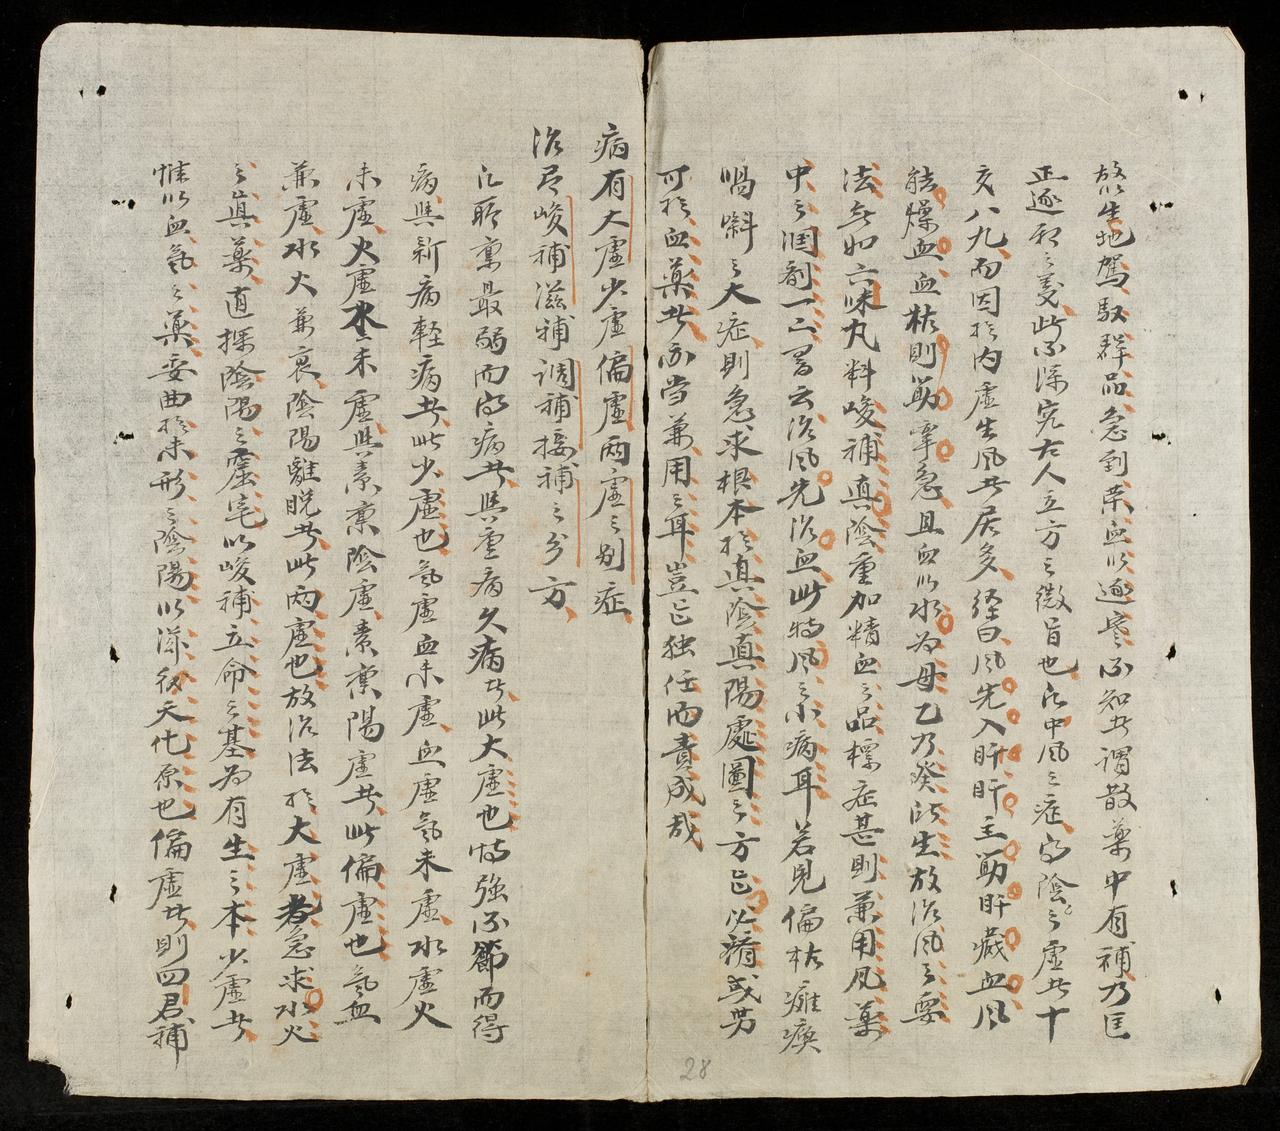 故以生地駕馭群品急到荣血以逐瘀不知此謂散藥中有補乃匡
正逐邪之義此不深究古人立方之微旨也凡中風之症為陰之虛者十
亥八九而因於内虛生風者居多経曰風先入肝肝主筋肝藏血風
能燥血血枯則筋挛急且血以水為母乙乃癸所生故治風之要
法無如六味丸料峻補真陰重加精血之品標症甚則兼用凡藥
中之潤劑一二噐云治風先治血此特風之小病耳若見偏枯癱瘓
喎斜之大症則急求根本於真陰真陽處圖之方芒必痛或男
可於血藥者亦当兼用之耳豈芒独任而責成哉
病有大虛少虛偏虛両虛之别症
治尽峻補滋補調補接補之分方
凡所禀最弱而㝍病者與重病久病者此大虛也恃強不節而得
病與新病軽病者此少虛也氣虛血未虛血虛氣未虛水虛火
未虛火虛水未虛與素禀陰虛素禀陽虛者此偏虛也氣血
兼虛水火兼衰陰陽離脱者此両虛也故治法於大虛者急求水火
之真藥直探陰陽之窟宅以峻補立命之基為有生之本少虛者
惟以血氣之藥委曲於未形之陰陽以滋後天化原也偏虛者則四君補